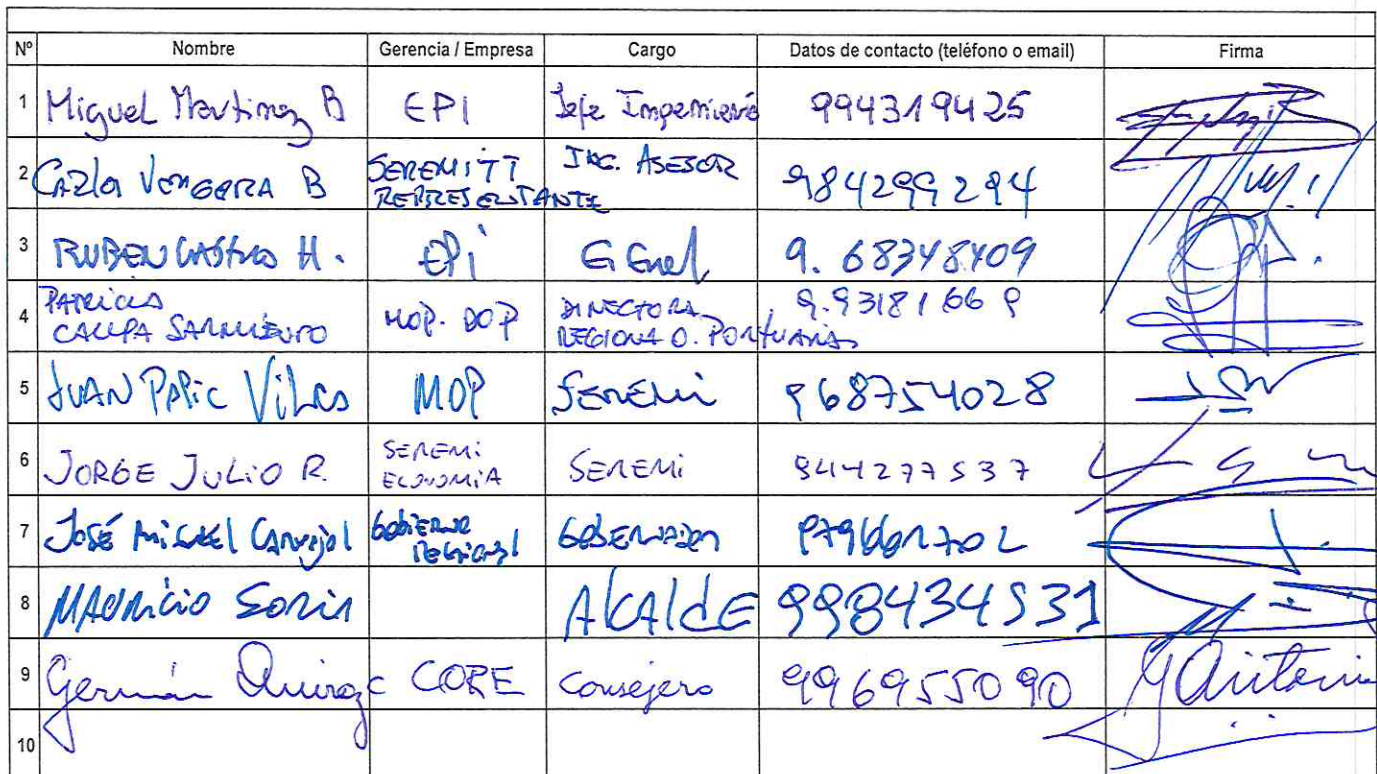 Nº Nombre Gerencia / Empresa Cargo Datos de contacto (teléfono o email) Firma
1 Miguel Martinez B EPI Jefe Ingeniería 994319425
2 Carla Vergara B SEREMITT REPRESENTANTE ING. ASESOR 984299294
3 RUBEN CASTRO H. EPI G Gnel 9. 68348409
4 PATRICIA CAMPA SARMIENTO MOP. DOP DIRECTORA REGIONAL O. PORTUARIAS 9.93181669
5 JUAN PAPIC VILCA MOP SEREMI 968754028
6 JORGE JULIO R. SEREMI ECONOMIA SEREMI 944277537
7 JOSÉ MIGUEL CARVAJAL GOBIERNO REGIONAL GOBERNADOR
8 MAURICIO SORIA ALCALDE 998434531
9 Germán Quiroz CORE Consejero 996955090
10